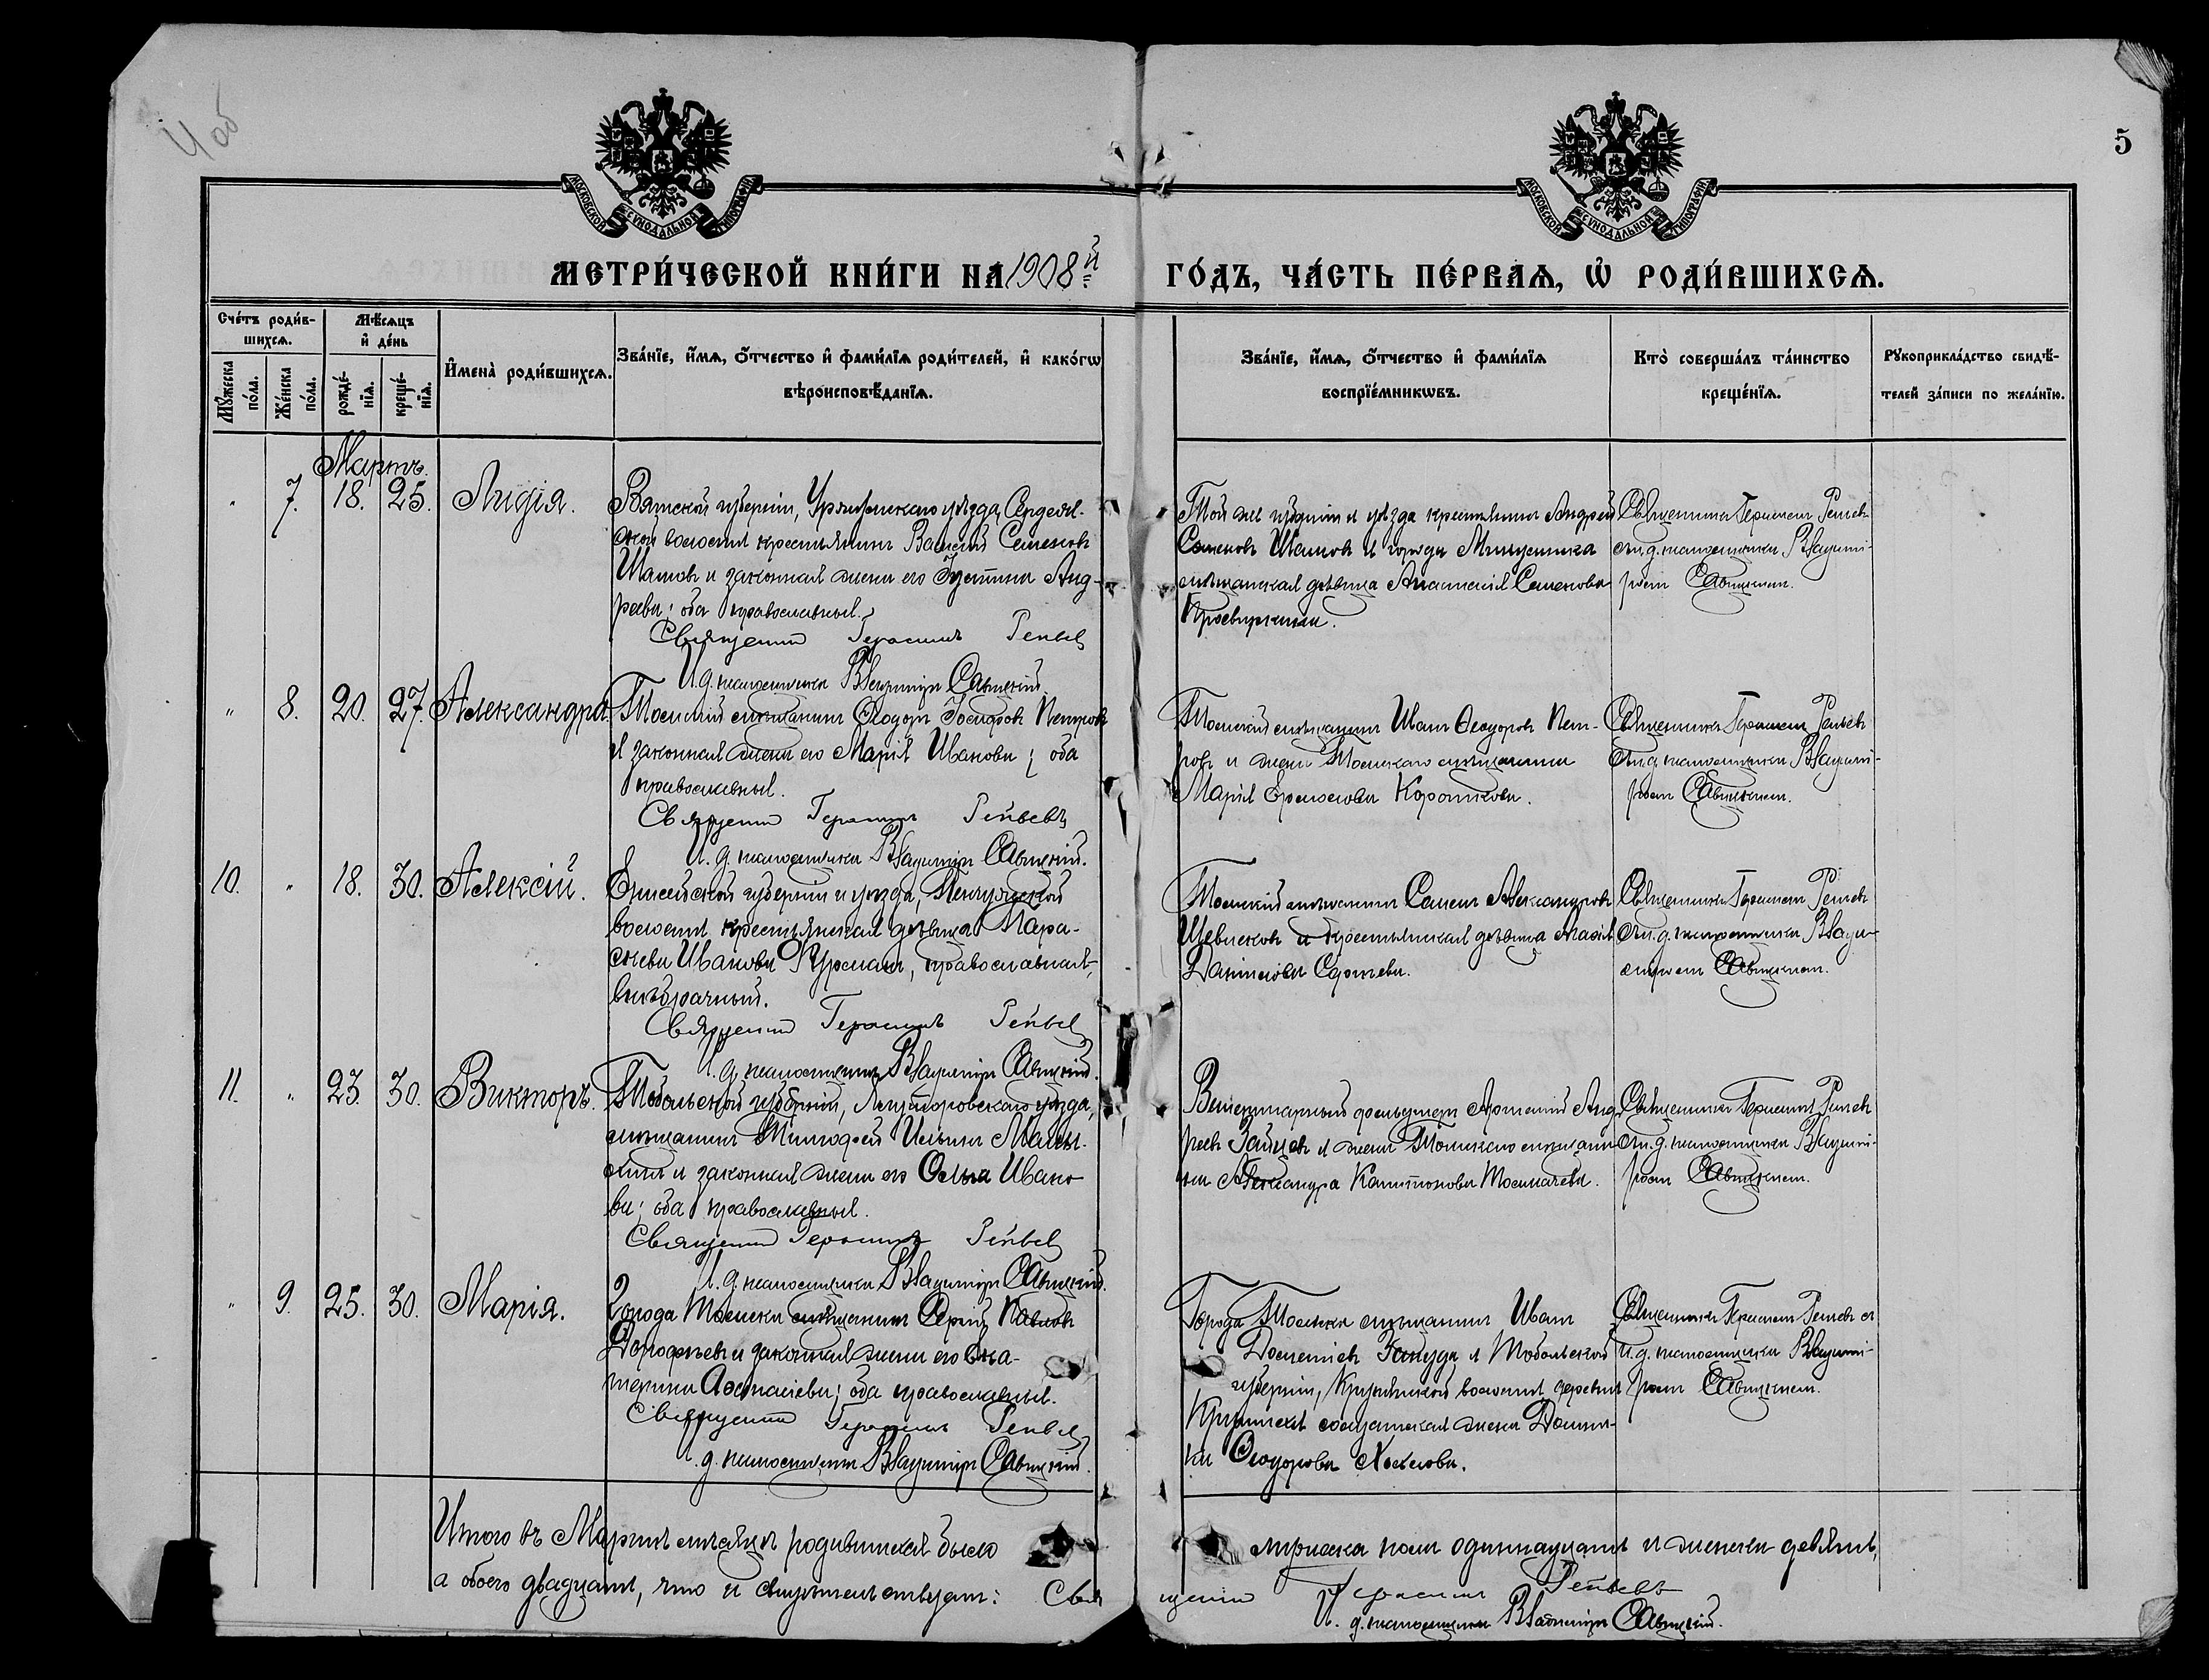 4 об
5
МОСКОВСКОЙ СѴНОДАЛЬНОЙ ТИПОГРАФІИ
МОСКОВСКОЙ СѴНОДАЛЬНОЙ ТИПОГРАФІИ
МЕТРИ́ЧЕСКОЙ КНИ́ГИ НА 1908й
ГО́ДЪ, ЧА́СТЬ ПЕ́РВАѦ, Ѡ҆ РОДИ́ВШИХСѦ.
Сче́тъ роди́в-
шихсѧ.
Мѣ́сѧцъ
и҆ де́нь
Мꙋ́жеска по́ла.
Же́нска по́ла.
рожде́-
нїѧ.
креще́-
нїѧ.
И҆мена̀ роди́вшихсѧ.
Зва́нїе, и҆́мѧ, ѻ҆́тчество и҆ фами́лїѧ роди́телей, и҆ како́гѡ
вѣроисповѣ́данїѧ.
Зва́нїе, и҆́мѧ, ѻ҆́тчество и҆ фами́лїѧ
воспрїе́мникѡвъ.
Кто̀ соверша́лъ та́инство
креще́нїѧ.
Рꙋкоприкла́дство свидѣ́-
телей за́писи по жела́нїю.
Мартъ.
" 7. 18. 25. Лидія.
Вятской губерніи, Уржумскаго уѣзда,
волости крестьянинъ Василій Семеновъ
Шатовъ и законная жена его Іустина Анд-
реева; оба православные.
Священникъ Герасимъ Геньев
И. д. псаломщика Владиміръ Савицкій.
Той же губерніи и уѣзда крестьянинъ Андрей
Семеновъ Шатовъ и города Минусинска
мѣщанская дѣвица Анастасія Семенова
Просвиркина.
Священникъ Герасимъ Геньевъ
съ и. д. псаломщика Владимі-
ромъ Савицкимъ.
" 8. 20. 27. Александра.
Томскій мѣщанинъ Ѳеодоръ Петровъ
и законная жена его Марія Иванова; оба
православные.
Священникъ Герасимъ Геньевъ
И. д. псаломщика Владиміръ Савицкій.
Томскій мѣщанинъ Иванъ Ѳеодоровъ Пет-
ровъ и жена Томскаго мѣщанина
Марія Ермолова Короткова.
Священникъ Герасимъ Геньевъ
съ и. д. псаломщика Владимі-
ромъ Савицкимъ.
10. " 18. 30. Алексій.
Енисейской губерніи и уѣзда,
волости крестьянская дѣвица Пара-
скева Иванова, православная,
внѣбрачный.
Священникъ Герасимъ Геньев
И. д. псаломщика Владиміръ Савицкій.
Томскій мѣщанинъ Семенъ Александровъ
Шевцовъ и крестьянская дѣвица Марія
Даніилова
Священникъ Герасимъ Геньевъ
съ и. д. псаломщика Влади-
міромъ Савицкимъ.
11. " 23. 30. Викторъ.
Тобольской губерніи, Ялуторовскаго уѣзда,
мѣщанинъ Тимофей Ильинъ Малы-
и законная жена его Ольга Ивано-
ва; оба православные.
Священникъ Герасимъ Геньев
И. д. псаломщика Владиміръ Савицкій.
Ветеринарный фельдшеръ Артемій Анд-
реевъ Зайцевъ и жена Томскаго мѣщани-
на Александра Капитонова Толмачева.
Священникъ Герасимъ Геньевъ
съ и. д. псаломщика Владимі-
ромъ Савицкимъ.
" 9. 25. 30. Марія.
Города Томска мѣщанинъ Сергій Павловъ
Дорофѣевъ и законная жена его Ека-
терина Аѳанасіева; оба православные.
Священникъ Герасимъ Геньев
И. д. псаломщика Владиміръ Савицкій.
Города Томска мѣщанинъ Иванъ
Дометіевъ и Тобольской
губерніи, волости, деревни
жена Домни-
ка Ѳеодорова
Священникъ Герасимъ Геньевъ съ
и. д. псаломщика Владимі-
ромъ Савицкимъ.
Итого въ Мартѣ мѣсяцѣ родившихся было
мужеска пола одиннадцать и женска девять,
а обоего двадцать, что и свидѣтельствуемъ: Свя
щенникъ Герасимъ Геньевъ
И. д. псаломщика Владиміръ Савицкій.